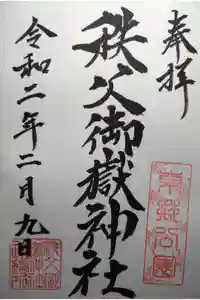 奉拝
秩父御嶽神社
令和二年二月九日
東郷公園